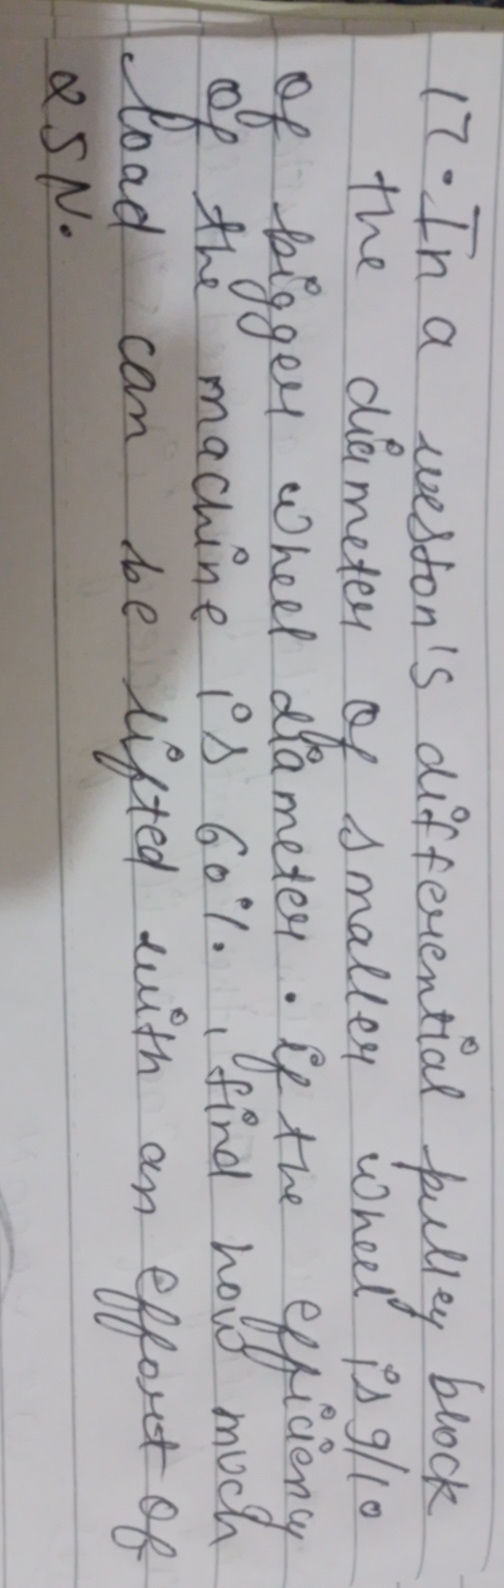 17. In a weston's differential pulley block
the diameter of smaller wheel is 9/10
of bigger wheel diameter. if the efficiency
of the machine is 60%., find how much
load can be lifted with an effort of
25N.